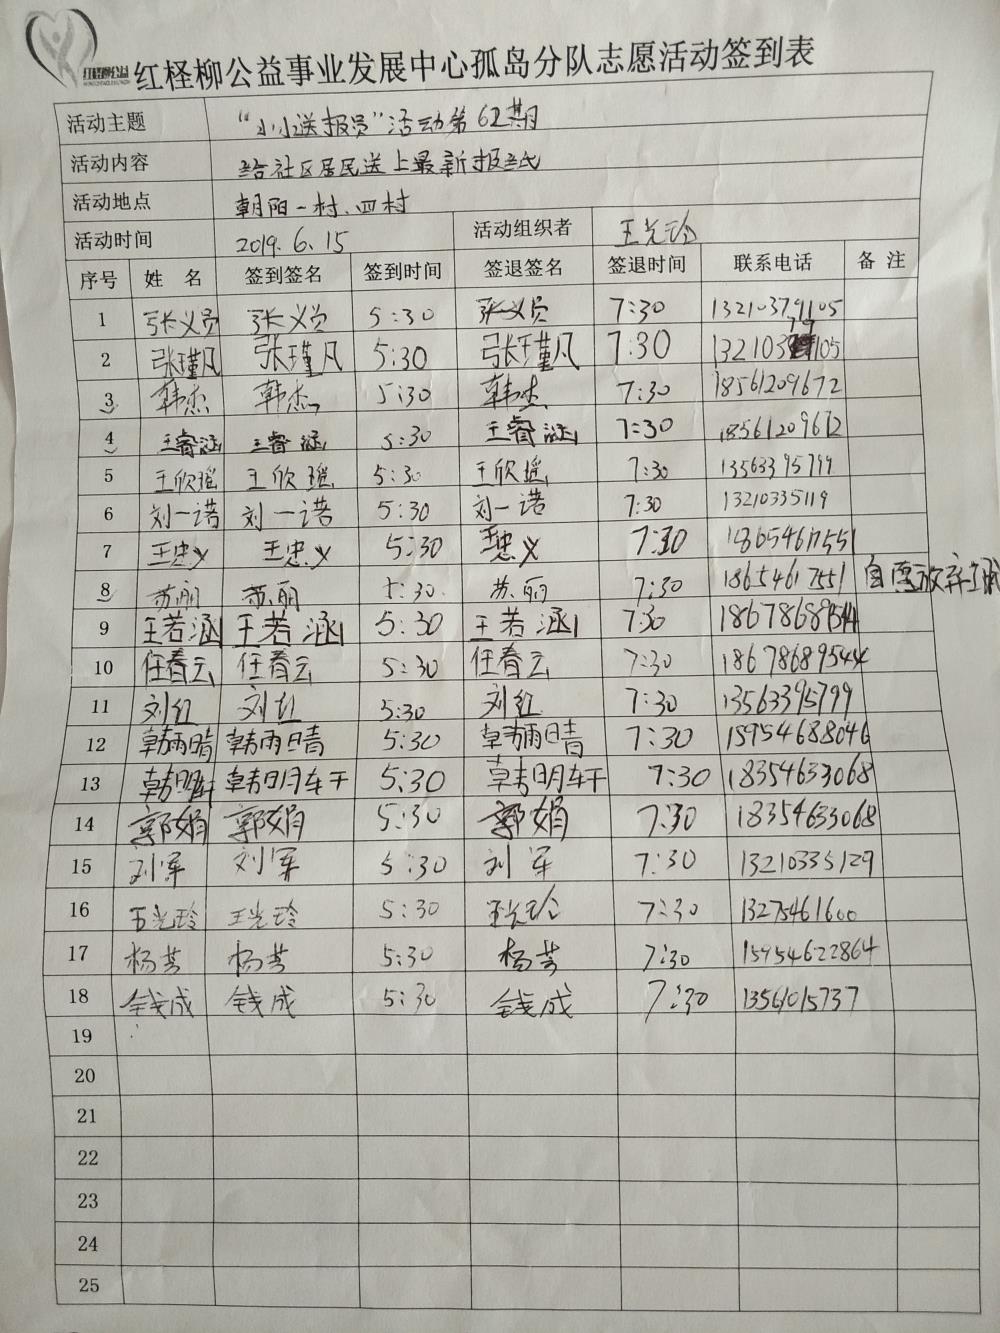 红柽柳公益事业发展中心孤岛分队志愿活动签到表
活动主题 “小小送报员”活动第62期
活动内容 给社区居民送上最新报纸
活动地点 朝阳一村、四村
活动时间 2019.6.15 活动组织者 王光玲
序号 姓名 签到签名 签到时间 签退签名 签退时间 联系电话 备注
1 张义员 张义员 5:30 张义员 7:30 13210379105
2 张瑾凡 张瑾凡 5:30 张瑾凡 7:30 13210379105
3 韩杰 韩杰 5:30 韩杰 7:30 18561209672
4 王睿涵 王睿涵 5:30 王睿涵 7:30 18561209672
5 王欣瑶 王欣瑶 5:30 王欣瑶 7:30 13563395799
6 刘一诺 刘一诺 5:30 刘一诺 7:30 13210335119
7 王忠义 王忠义 5:30 王忠义 7:30 18654617551
8 苏丽 苏丽 5:30 苏丽 7:30 18654617551 自愿放弃
9 王若涵 王若涵 5:30 王若涵 7:30 18678689544
10 任春云 任春云 5:30 任春云 7:30 18678689544
11 刘红 刘红 5:30 刘红 7:30 13563395799
12 韩雨晴 韩雨晴 5:30 韩雨晴 7:30 15954688046
13 韩明轩 韩明轩 5:30 韩明轩 7:30 18354633068
14 郭娟 郭娟 5:30 郭娟 7:30 18354633068
15 刘军 刘军 5:30 刘军 7:30 13210335129
16 王光玲 王光玲 5:30 王光玲 7:30 13275461600
17 杨芳 杨芳 5:30 杨芳 7:30 15954622864
18 钱成 钱成 5:30 钱成 7:30 13561015737
19
20
21
22
23
24
25